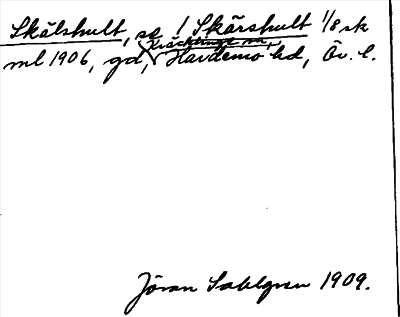 Skälshult, se / Skärshult 1/8 sk
Kräcklinge sn,
ml 1906, gd, Hardemo hd, Ör. l.
Jöran Sahlgren 1909.